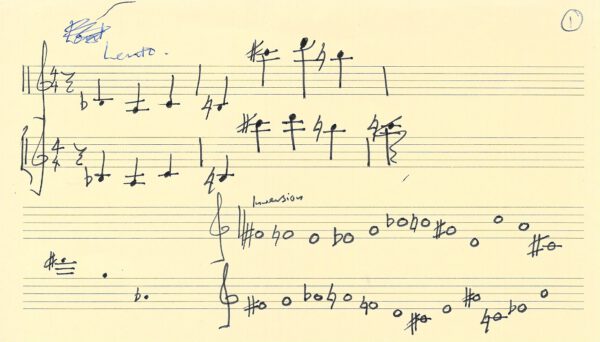 1
Lento.
4/4
4/4
Inversion